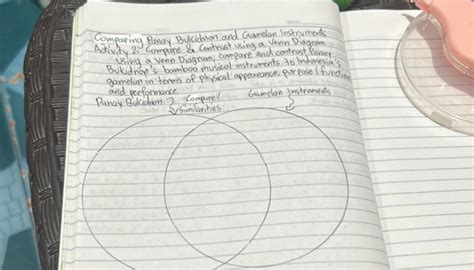 Comparing Panay Bukidnon and Gamelan Instruments
Activity 2: Compare & Contrast using a Venn Diagram
Using a Venn Diagram, compare and contrast Panay
Bukidnon's bamboo musical instruments to Indonesia's
gamelan in terms of physical appearance, purpose / function
and performance.
Panay Bukidnon Compare / Gamelan Instruments
Similarities